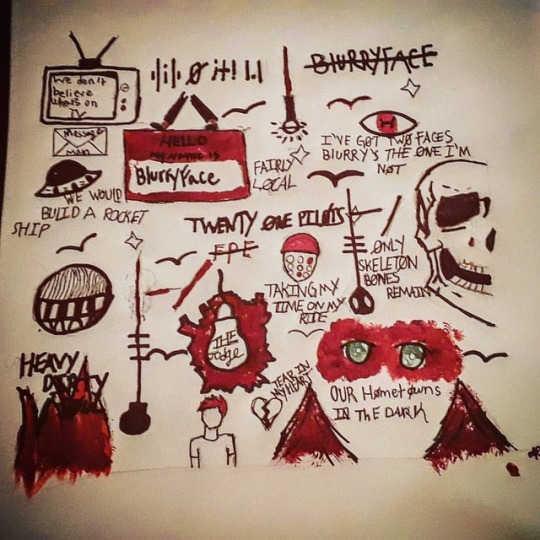 We don't
believe
whats on
TV
BLURRYFACE
Message
man
HELLO
my name is
BlurryFace
I'VE GOT TWO FACES
BLURRY'S THE ONE I'M
NOT
FAIRLY
LOCAL
WE WOULD
BUILD A ROCKET
SHIP
TWENTY ONE PILOTS
ONLY
SKELETON
BONES
REMAIN
TAKING MY
TIME ON MY
RIDE
THE
Judge
HEAVY
DIRTY
TEAR IN
MY HEART
OUR Hometowns
IN THE DARK